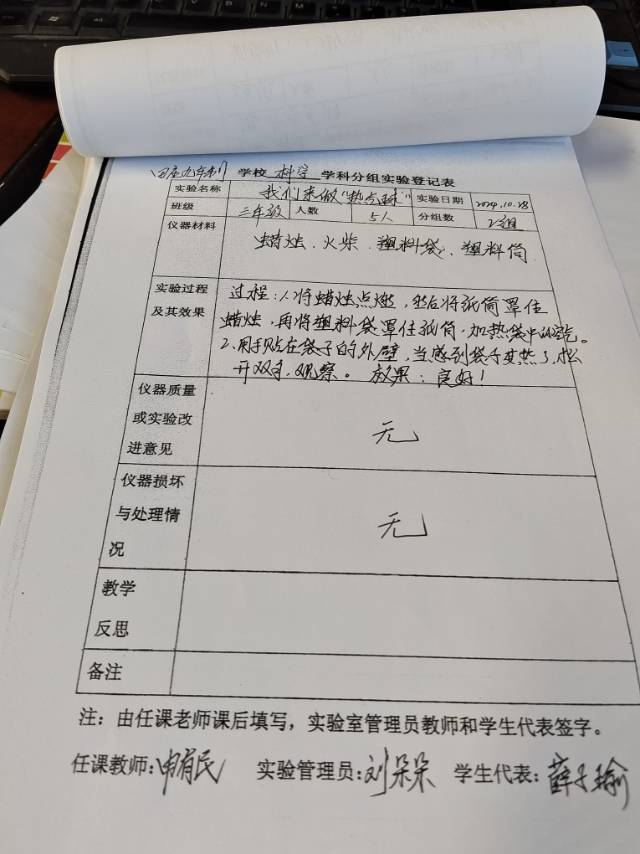 田庄九年制 学校 科学 学科分组实验登记表
实验名称 我们来做"热气球" 实验日期 2024.10.28
班级 三年级 人数 5人 分组数 2组
仪器材料 蜡烛、火柴、塑料袋、塑料筒
实验过程 过程:1、将蜡烛点燃,然后将纸筒罩住
及其效果 蜡烛,再将塑料袋罩住纸筒,加热袋中的空气。
2、用手贴在袋子的外壁,当感到袋子变热了,松
开双手,观察。 效果:良好!
仪器质量
或实验改 无
进意见
仪器损坏
与处理情 无
况
教学
反思
备注
注:由任课老师课后填写,实验室管理员教师和学生代表签字。
任课教师:申有民 实验管理员:刘朵朵 学生代表:薛子瑜